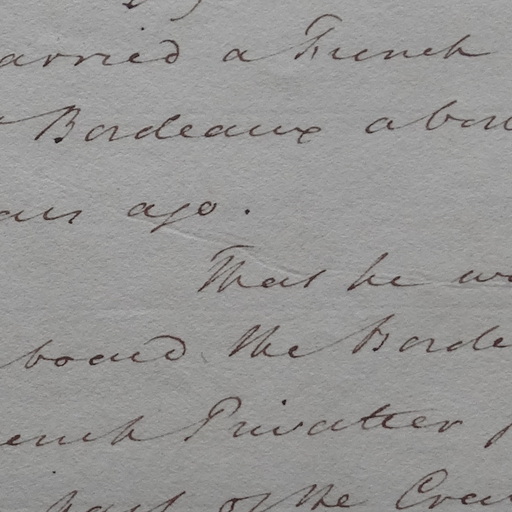 arried a French
Bordeaux abou
ars ago.
That he w
board the Borde
ench Privateer
part of the Crew